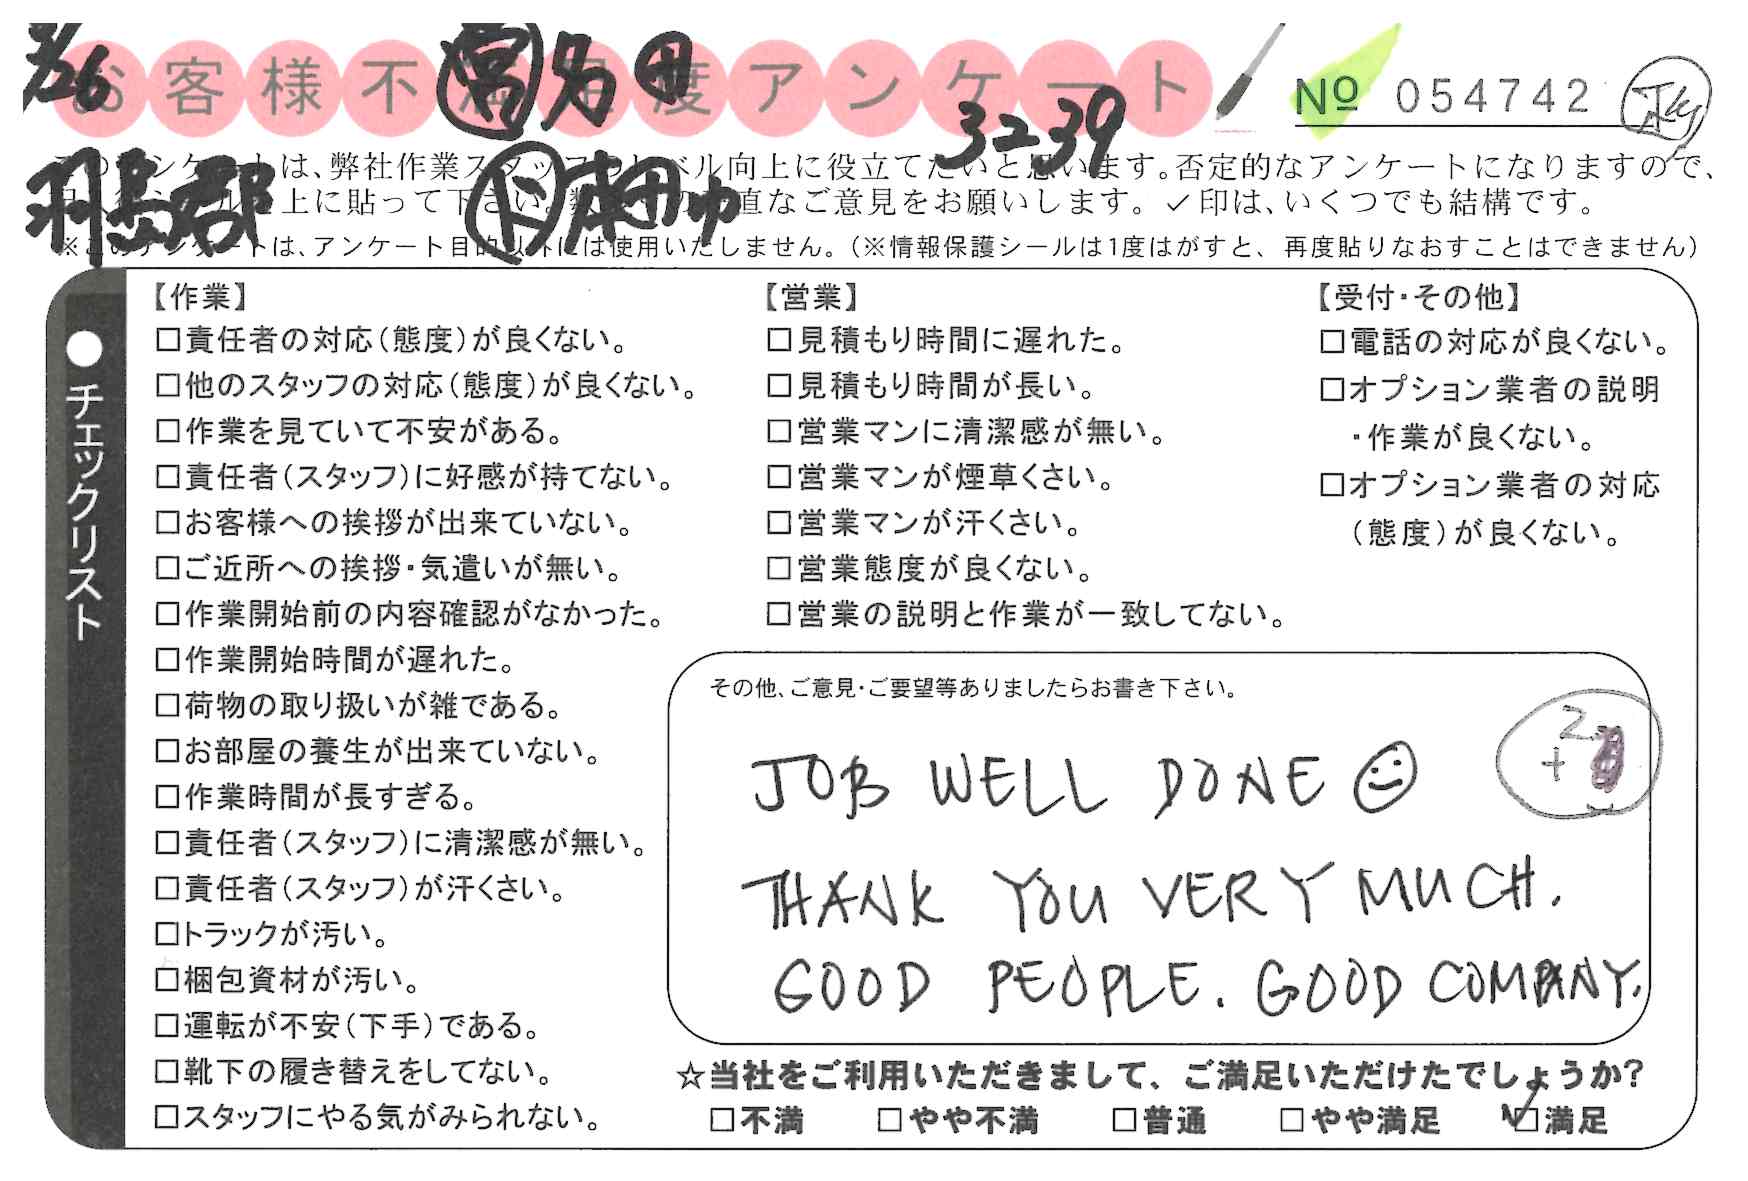 お客様不満足度アンケート
3239
№ 054742
このアンケートは、弊社作業スタッフのレベル向上に役立てたいと思います。否定的なアンケートになりますので、
上に貼って下さい。直なご意見をお願いします。✓印は、いくつでも結構です。
※このアンケートは、アンケート目的以外には使用いたしません。(※情報保護シールは1度はがすと、再度貼りなおすことはできません)
羽島郡
●チェックリスト
【作業】
□責任者の対応(態度)が良くない。
□他のスタッフの対応(態度)が良くない。
□作業を見ていて不安がある。
□責任者(スタッフ)に好感が持てない。
□お客様への挨拶が出来ていない。
□ご近所への挨拶・気遣いが無い。
□作業開始前の内容確認がなかった。
□作業開始時間が遅れた。
□荷物の取り扱いが雑である。
□お部屋の養生が出来ていない。
□作業時間が長すぎる。
□責任者(スタッフ)に清潔感が無い。
□責任者(スタッフ)が汗くさい。
□トラックが汚い。
□梱包資材が汚い。
□運転が不安(下手)である。
□靴下の履き替えをしてない。
□スタッフにやる気がみられない。
【営業】
□見積もり時間に遅れた。
□見積もり時間が長い。
□営業マンに清潔感が無い。
□営業マンが煙草くさい。
□営業マンが汗くさい。
□営業態度が良くない。
□営業の説明と作業が一致してない。
【受付・その他】
□電話の対応が良くない。
□オプション業者の説明
・作業が良くない。
□オプション業者の対応
(態度)が良くない。
その他、ご意見・ご要望等ありましたらお書き下さい。
JOB WELL DONE ☺
THANK YOU VERY MUCH.
GOOD PEOPLE. GOOD COMPANY.
☆当社をご利用いただきまして、ご満足いただけたでしょうか?
□不満 □やや不満 □普通 □やや満足 ☑満足